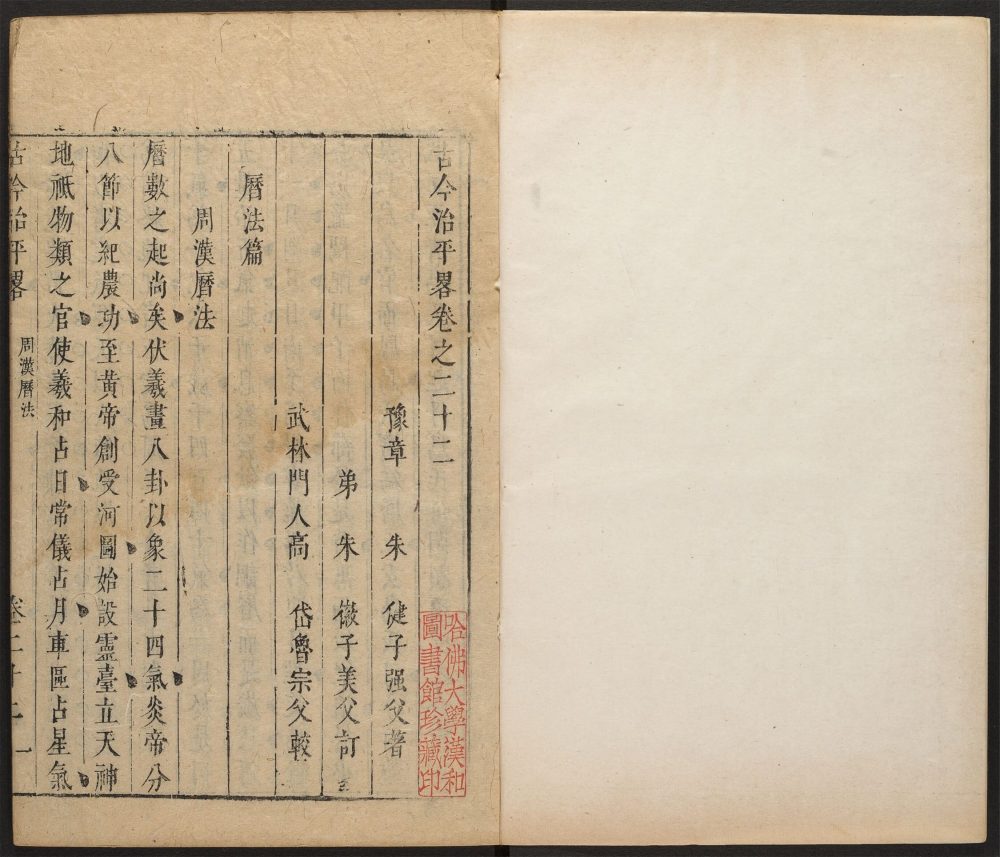 古今治平畧卷之二十二
豫章 朱 健子强父著
弟 朱 徽子美父訂
武林門人高 岱魯宗父較
曆法篇
周漢曆法
曆數之起尚矣伏羲畫八卦以象二十四氣炎帝分
八節以紀農功至黄帝創受河圖始設靈臺立天神
地祇物類之官使羲和占日常儀占月車區占星氣
古今治平畧 周漢曆法 卷二十二 一
哈佛大學漢和
圖書館珍藏印